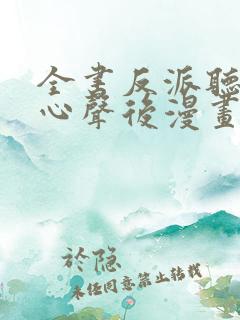 全書反派聽
心聲後漫畫
於隐
未经同意禁止转载